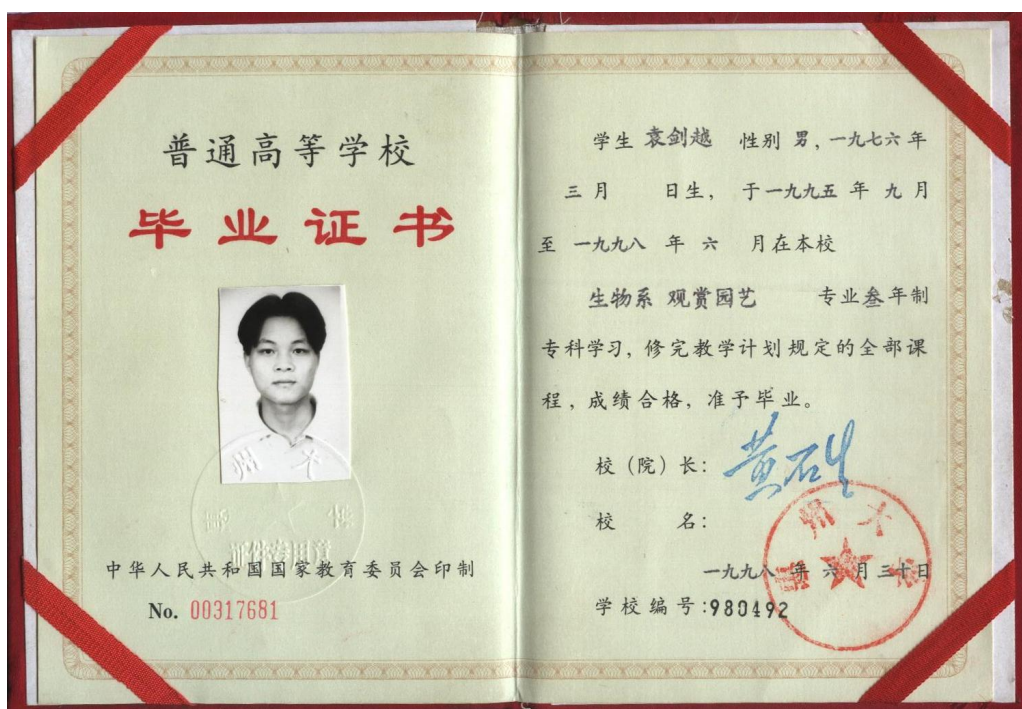 普通高等学校
毕业证书
证件专用章
中华人民共和国国家教育委员会印制
No. 00317681
学生 袁剑越 性别 男，一九七六年
三月 日生， 于一九九五 年 九月
至 一九九八 年 六 月在本校
生物系 观赏园艺 专业叁年制
专科学习，修完教学计划规定的全部课
程，成绩合格，准予毕业。
校（院）长：黄石生
校 名：
一九九八 年 六 月三十日
学校编号：980492